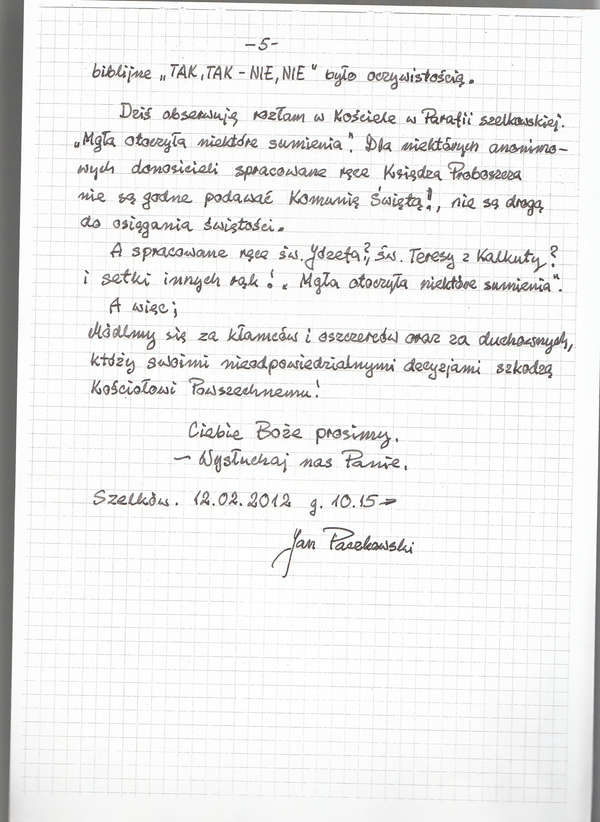 -5-
biblijne „TAK, TAK - NIE, NIE" było oczywistością.
Dziś obserwują rozłam w Kościele w Parafii szelkowskiej.
„Mgła otoczyła niektóre sumienia". Dla niektórych anonimo-
wych donosicieli spracowane ręce Księdza Proboszcza
nie są godne podawać Komunię Świętą!, nie są drogą
do osiągania świętości.
A spracowane ręce św. Józefa?, św. Teresy z Kalkuty?
i setki innych rąk! „Mgła otoczyła niektóre sumienia".
A więc;
Módlmy się za kłamców i oszczerców oraz za duchownych,
którzy swoimi nieodpowiedzialnymi decyzjami szkodzą
Kościołowi Powszechnemu!
Ciebie Boże prosimy.
- Wysłuchaj nas Panie.
Szelków. 12.02.2012 g. 10.15
Jan Paczkowski